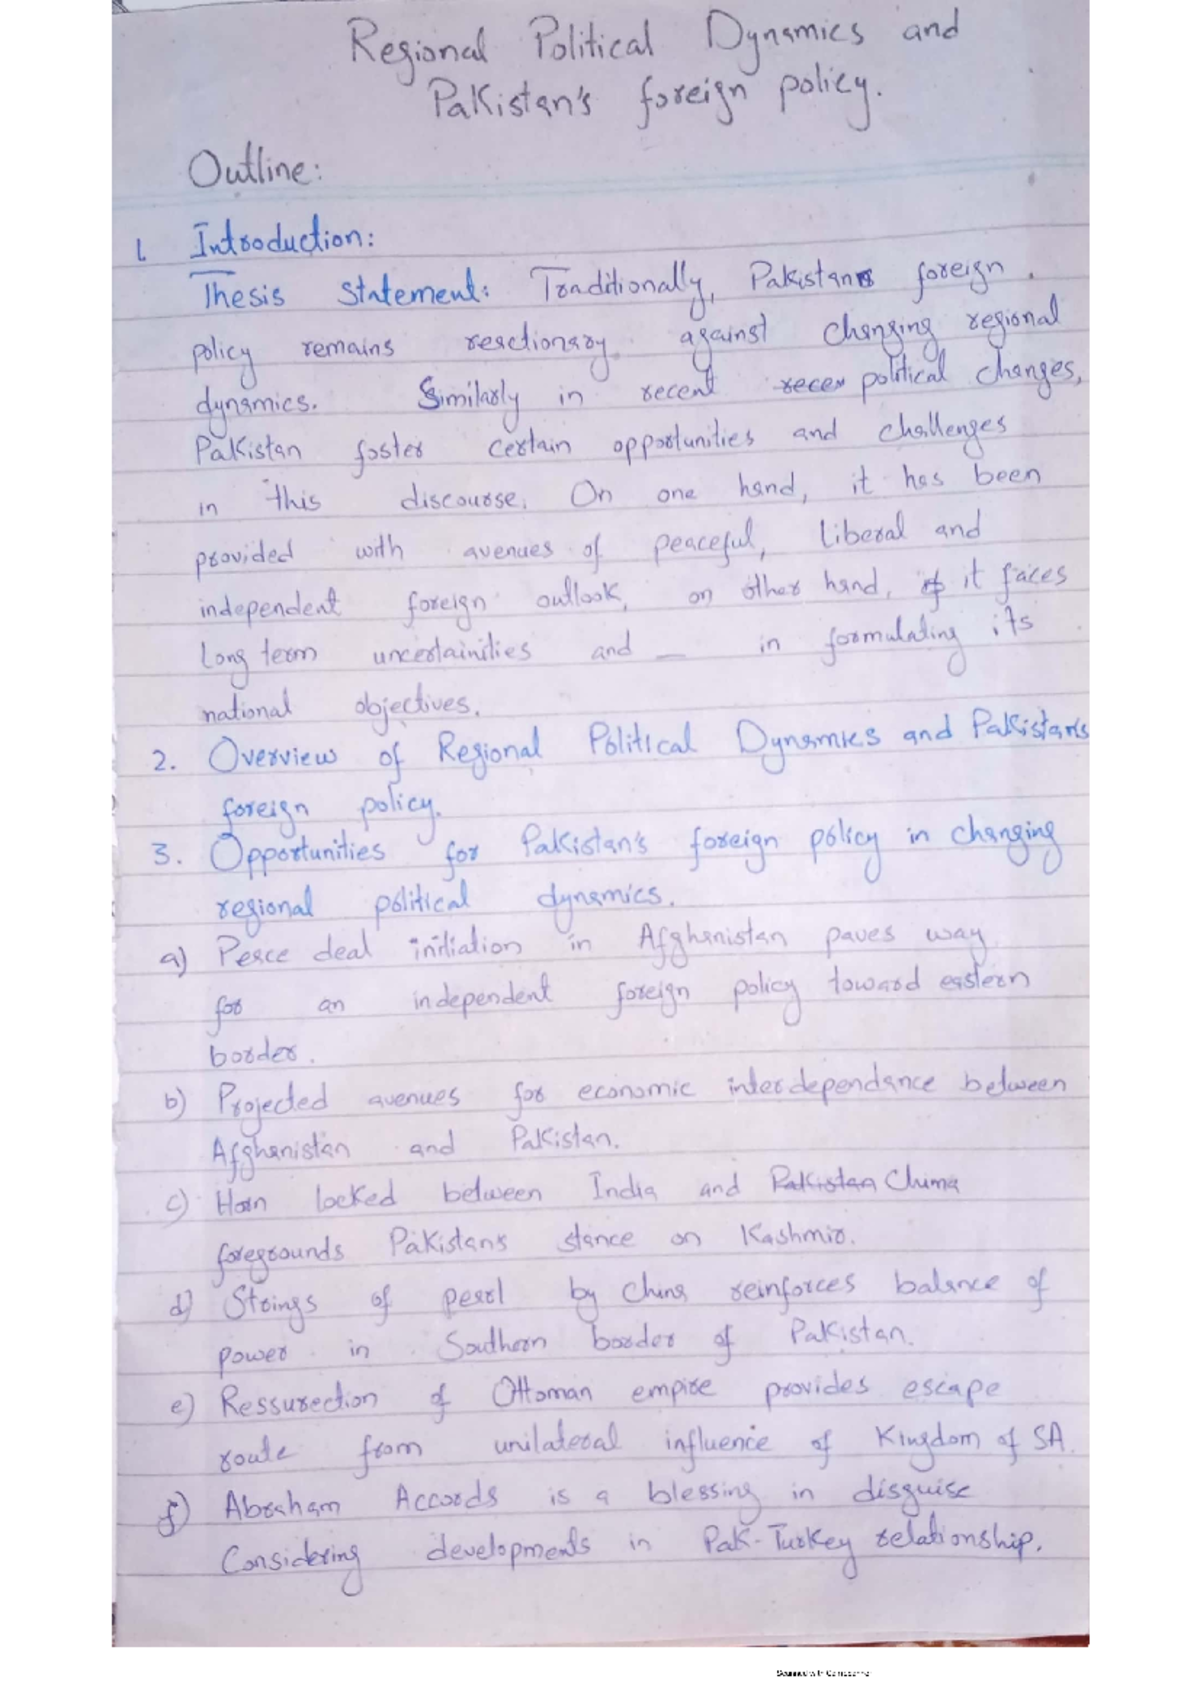 Regional Political Dynamics and
Pakistan's foreign policy.
Outline:
1. Introduction:
Thesis Statement: Traditionally, Pakistan's foreign
policy remains reactionary against changing regional
dynamics. Similarly in recent recen political changes,
Pakistan foster certain opportunities and challenges
in this discourse. On one hand, it has been
provided with avenues of peaceful, liberal and
independent foreign outlook, on other hand, if it faces
long term uncertainities and _ in formulating its
national objectives.
2. Overview of Regional Political Dynamics and Pakistan's
foreign policy.
3. Opportunities for Pakistan's foreign policy in changing
regional political dynamics.
a) Peace deal initiation in Afghanistan paves way
for an independent foreign policy toward eastern
border.
b) Projected avenues for economic interdependance between
Afghanistan and Pakistan.
c) Horn locked between India and Pakistan China
foregrounds Pakistan's stance on Kashmir.
d) Strings of pearl by China reinforces balance of
power in Southern border of Pakistan.
e) Ressurection of Ottoman empire provides escape
route from unilateral influence of Kingdom of SA.
f) Abraham Accords is a blessing in disguise
Considering developments in Pak-Turkey relationship.
Scanned with CamScanner